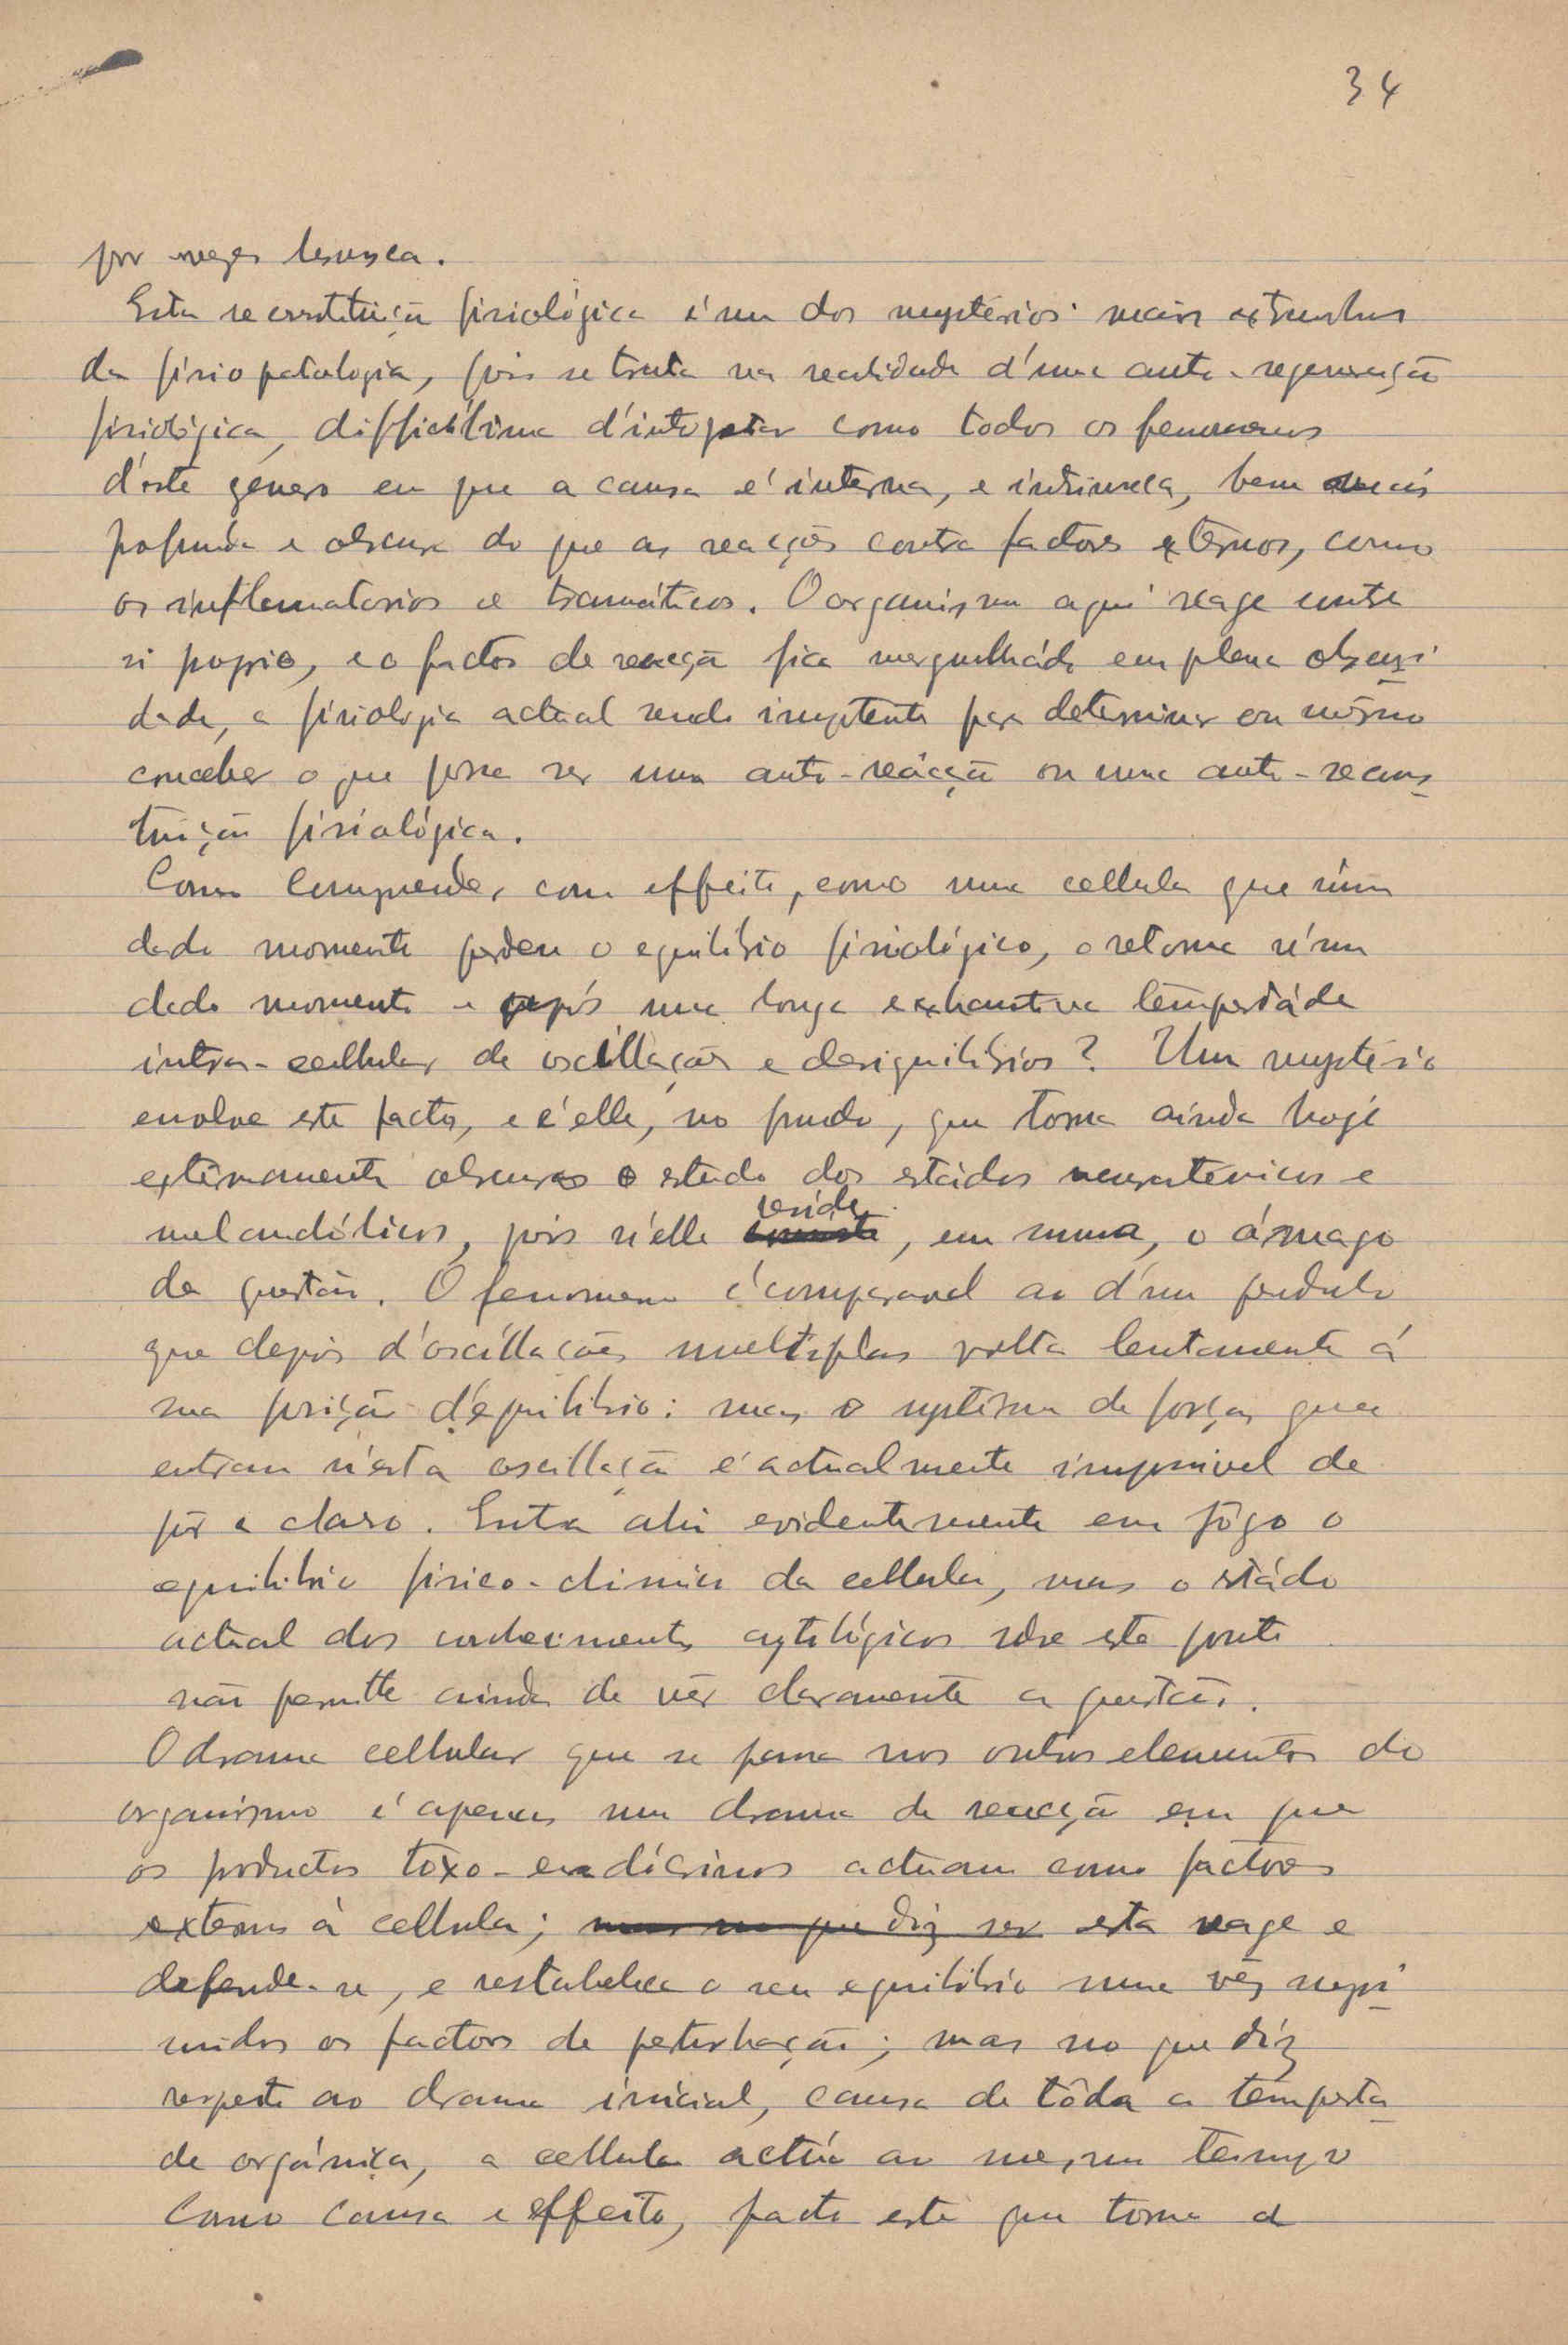 34
por vezes brusca.
Esta reconstituição fisiológica é um dos mystérios mais extranhos
da fisiopatologia, pois se trata na realidade d'uma auto-regeneração
fisiológica, difficílima d'interpretar como todos os fenomenos
d'este género em que a causa é interna, e intrinseca, bem mais
profunda e obscura do que as reacções contra factores externos, como
os inflamatorios e traumáticos. O organismo aqui reage contra
si proprio, e o factor de reacção fica mergulhádo em plena obscuri
dade, a fisiologia actual sendo impotente para determinar ou mêsmo
conceber o que possa ser uma auto-reácção ou uma auto-recons
tituição fisiológica.
Como comprender, com effeito, como uma cellula que n'um
dado momento perdeu o equilibrio fisiológico, o retoma n'um
dado momento e após uma longa e exhaustiva tempestáde
intra-cellular de oscillações e desiquilibrios? Um mystério
envolve este facto, e é elle, no fundo, que torna ainda hoje
extremamente obscuro o estudo dos estádos neurasténicos e
melancólicos, pois n'elle reside, em suma, o ámago
da questão. O fenomeno é comparavel ao d'um pendulo
que depois d'oscillações multiplas volta lentamente á
sua posição d'equilibrio: mas o systêma de forças que
entram n'esta oscillação é actualmente impossivel de
pôr a claro. Entra ahi evidentemente em jôgo o
equilibrio fisico-chimico da cellula, mas o estádo
actual dos conhecimentos cytológicos sobre este ponto
não permitte ainda de vêr claramente a questão.
O drama cellular que se passa nos outros elementos do
organismo é apenas um drama de reacção em que
os productos toxo-endócrinos actuam como factores
externos á cellula; mas no que diz res esta reage e
defende-se, e restabelece o seu equilibrio uma vêz supri
midos os factores de perturbação; mas no que díz
respeito ao drama inicial, causa de tôda a tempesta
de orgánica, a cellula actúa ao mesmo tempo
como causa e effeito, facto este que torna a